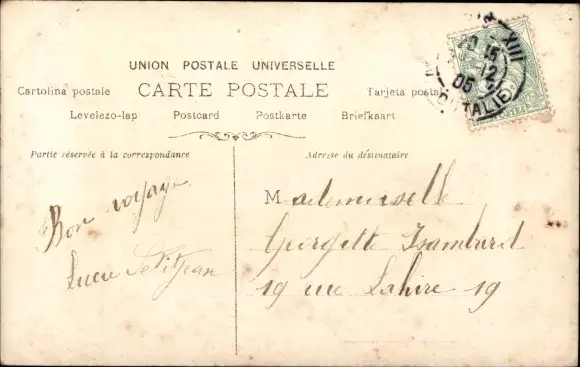 UNION POSTALE UNIVERSELLE
Cartolina postale CARTE POSTALE Tarjeta postal
Levelezo-lap Postcard Postkarte Briefkaart
Partie réservée à la correspondance
Adresse du destinataire
Bon voyage
Lucie Petitjean
Mademoiselle
Georgette Isambard
19 rue Lahire 19
XIII
20 15
12
05
D'ITALIE